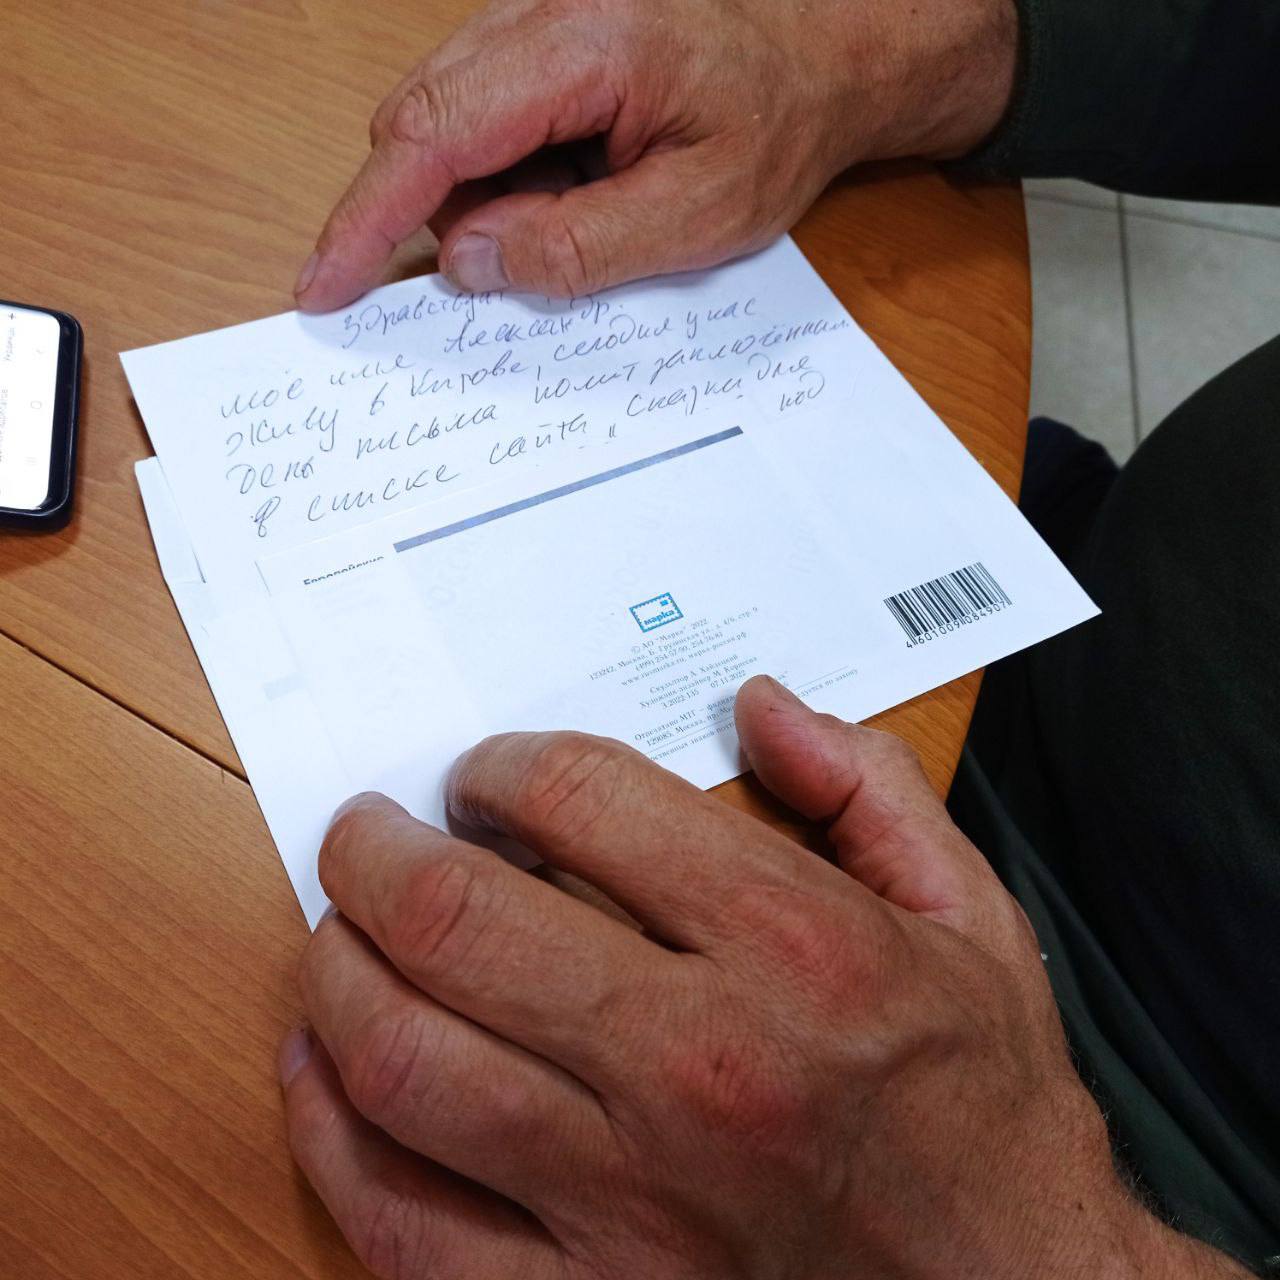 Здравствуй
моё имя Александр.
живу в Кирове, сегодня у нас
день письма полит заключённым.
в списке сайта "Сказки для
под
Европейские
марка
© АО "Марка" 2022
123242, Москва, Б. Грузинская ул., д. 4/6, стр. 9
(499) 254-57-90, 254-76-83
www.rusmarka.ru, марка-россии.рф
Скульптор А. Хайдецкий
Художник-дизайнер М. Корнеева
З.2022-145 07.11.2022
Отпечатано МТГ – филиал
129085, Москва, пр. Ми
едуется по закону
4601009084907